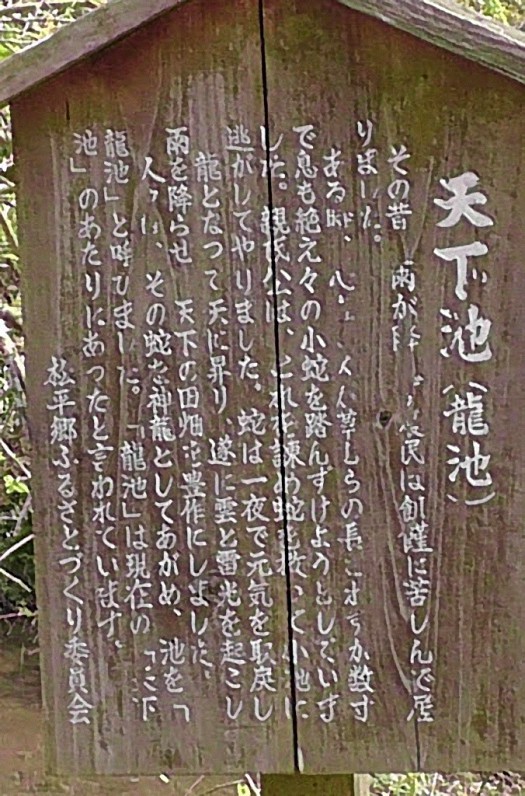 天下池(龍池)
その昔 雨が降 農民は飢饉に苦しんで居
りました。
ある時、 草むらの長さ 数寸
で息も絶え々の小蛇を踏んずけようとしていま
した。親氏公は、これを諌め蛇を救いて小池に
逃がしてやりました。蛇は一夜で元気を取戻し
龍となって天に昇り、遂に雲と雷光を起こし
雨を降らせ 天下の田畑を豊作にしました。
人々は、その蛇を神龍としてあがめ、池を「
龍池」と呼びました。「龍池」は現在の「天下
池」のあたりにあったと言われています。
松平郷ふるさとづくり委員会